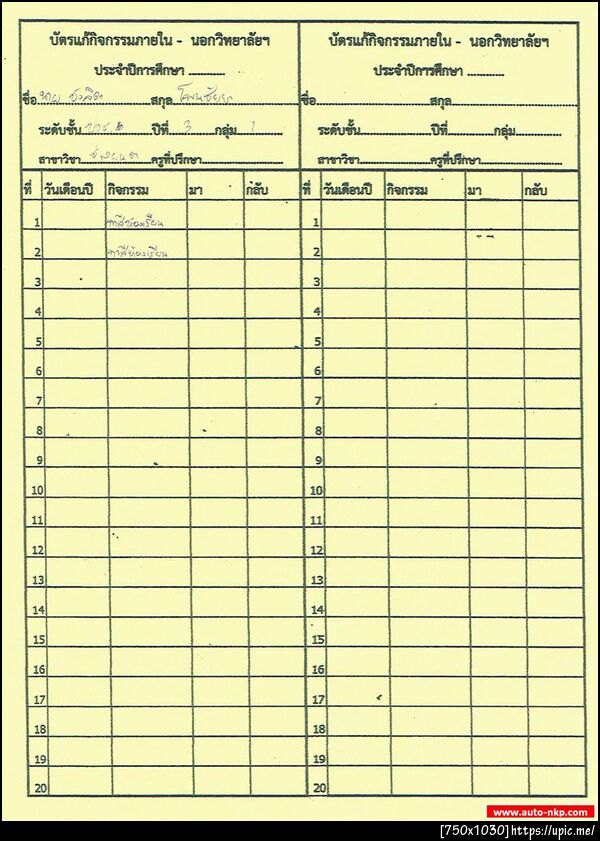 บัตรแก้กิจกรรมภายใน - นอกวิทยาลัยฯ
ประจำปีการศึกษา ...........
ชื่อ นาย สกุล
ระดับชั้น ปวช. ปีที่ 3 กลุ่ม 1
สาขาวิชา ช่างยนต์ ครูที่ปรึกษา
ที่ วันเดือนปี กิจกรรม มา กลับ
1 ทาสีห้องเรียน
2 ทาสีห้องเรียน
3
4
5
6
7
8
9
10
11
12
13
14
15
16
17
18
19
20
บัตรแก้กิจกรรมภายใน - นอกวิทยาลัยฯ
ประจำปีการศึกษา ...........
ชื่อ สกุล
ระดับชั้น ปีที่ กลุ่ม
สาขาวิชา ครูที่ปรึกษา
ที่ วันเดือนปี กิจกรรม มา กลับ
1
2
3
4
5
6
7
8
9
10
11
12
13
14
15
16
17
18
19
20
www.auto-nkp.com
[750x1030]https://upic.me/